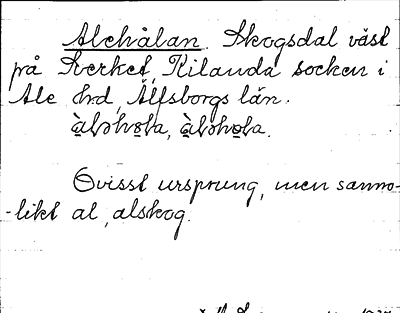 Alehålan. Skogsdal väst
på Sverket, Kilanda socken i
Ale hrd, Älfsborgs län.

Ovisst ursprung, men sanno-
-likt al, alskog.